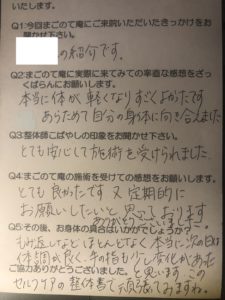 いたします。
Q1:今回まごのて庵にご来院いただいたきっかけをお
聞かせ下さい。
の紹介です。
Q2:まごのて庵に実際に来てみての率直な感想をざっ
くばらんにお願いします。
本当に体が軽くなりすごくよかったです
あらためて自分の身体に向き合えました
Q3:整体師こばやしの印象をお聞かせ下さい。
とても安心して施術を受けられました。
Q4:まごのて庵の施術を受けての感想をお願いします。
とても良かったです 又定期的に
お願いしたいと思っております
ありがとうございました。
Q5:その後、お身体の具合はいかがでしょうか?
もみ返しなどほとんどなく本当に次の日は
体調が良く、手の指も少し変化があった
ご協力ありがとうございました。と思います この
セルフケアの整体書で頑張ってみますね。